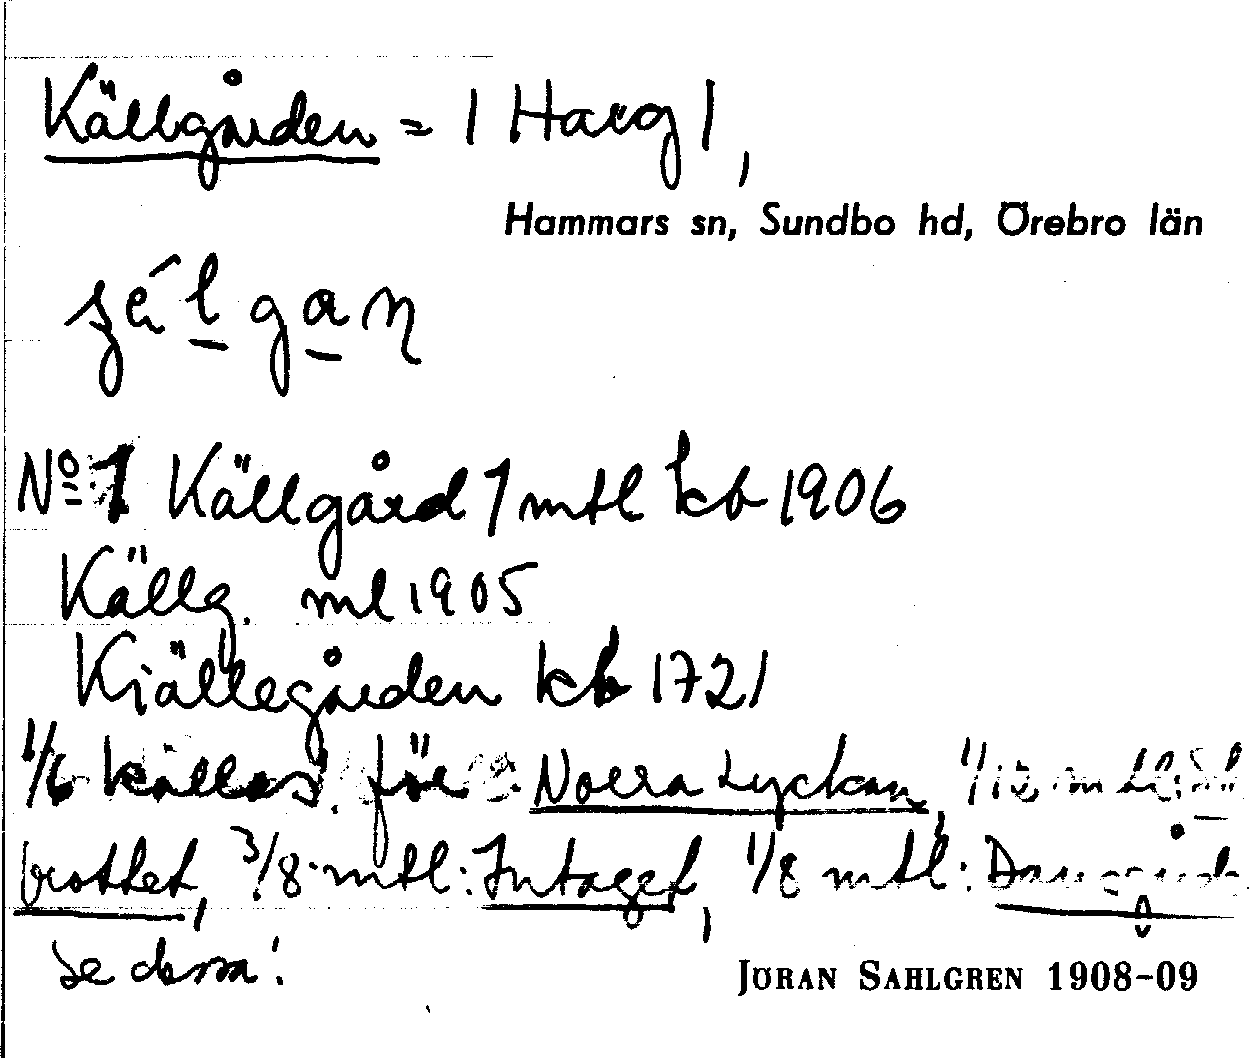 Källgården = | Harg |,
Hammars sn, Sundbo hd, Örebro län
No 1 Källgård 1 mtl kb 1906
Källg. ml 1905
Kiällegården kb 1721
1/6 kallas för Norra Lyckan, 1/12 mtl:
brottet, 3/8 mtl: Intaget, 1/8 mtl:
se dessa!
JÖRAN SAHLGREN 1908-09